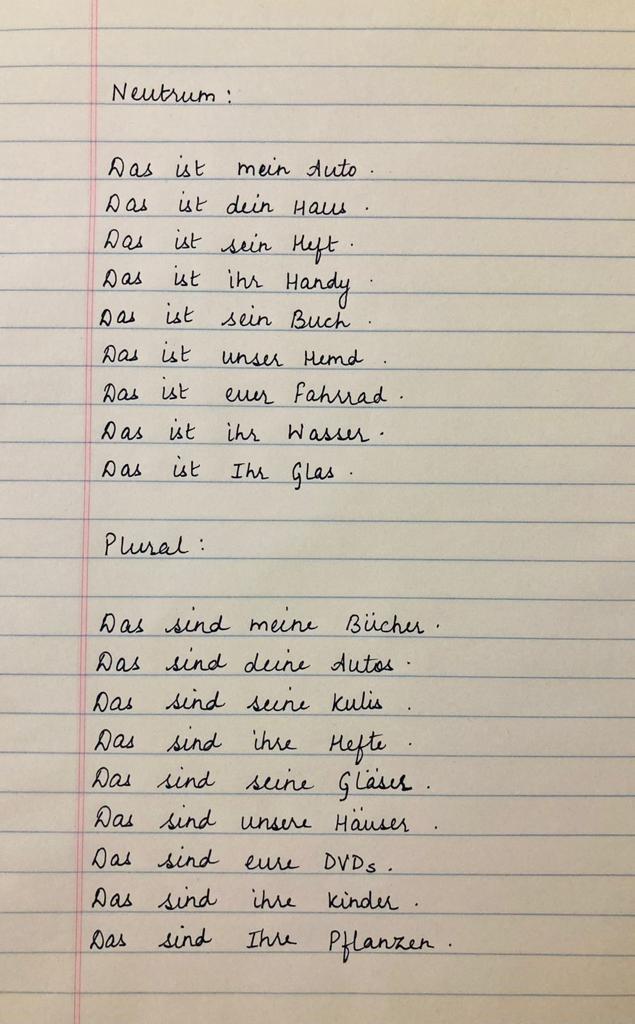 Neutrum :
Das ist mein Auto .
Das ist dein Haus .
Das ist sein Heft .
Das ist ihr Handy .
Das ist sein Buch .
Das ist unser Hemd .
Das ist euer Fahrrad .
Das ist ihr Wasser .
Das ist Ihr Glas .
Plural :
Das sind meine Bücher .
Das sind deine Autos .
Das sind seine Kulis .
Das sind ihre Hefte .
Das sind seine Gläser .
Das sind unsere Häuser .
Das sind eure DVDs .
Das sind ihre Kinder .
Das sind Ihre Pflanzen .